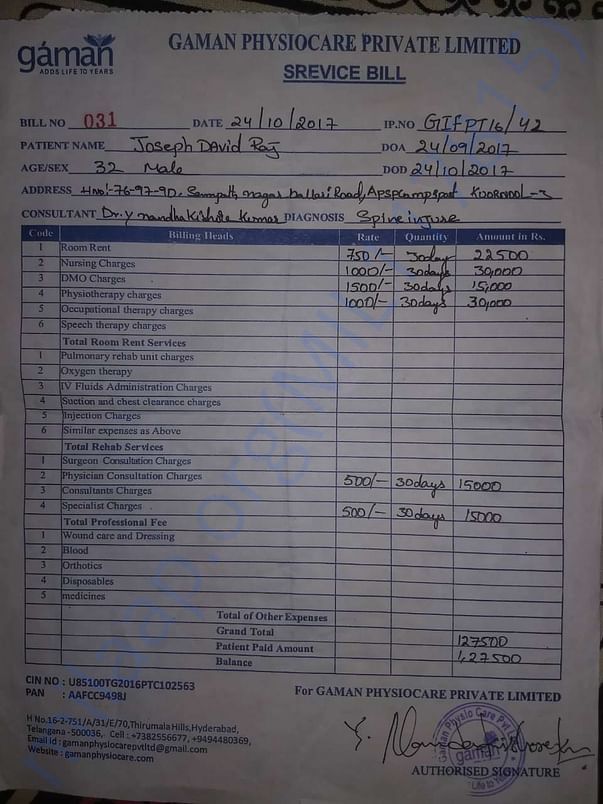 gáman
ADDS LIFE TO YEARS
GAMAN PHYSIOCARE PRIVATE LIMITED
SREVICE BILL
BILL NO 031 DATE 24/10/2017 IP.NO GIFPT16/42
PATIENT NAME Joseph David Raj DOA 24/09/2017
AGE/SEX 32 Male DOD 24/10/2017
ADDRESS HNo:-76-97-9D, Sampath nagar ballari Road, Apspcamp KOORNOOL-3
CONSULTANT Dr.y nandha Kishore Kumar DIAGNOSIS Spine injure
Code Billing Heads Rate Quantity Amount in Rs.
1 Room Rent 750/- 30day 22500
2 Nursing Charges 1000/- 30days 30,000
3 DMO Charges 1500/- 30days 15,000
4 Physiotherapy charges 1000/- 30days 30,000
5 Occupational therapy charges
6 Speech therapy charges
Total Room Rent Services
1 Pulmonary rehab unit charges
2 Oxygen therapy
3 IV Fluids Administration Charges
4 Suction and chest clearance charges
5 Injection Charges
6 Similar expenses as Above
Total Rehab Services
1 Surgeon Consultation Charges
2 Physician Consultation Charges 500/- 30days 15000
3 Consultants Charges
4 Specialist Charges 500/- 30days 15000
Total Professional Fee
1 Wound care and Dressing
2 Blood
3 Orthotics
4 Disposables
5 medicines
Total of Other Expenses
Grand Total
Patient Paid Amount 127500
Balance 1,27500
CIN NO : U85100TG2016PTC102563
PAN : AAFCC9498J
For GAMAN PHYSIOCARE PRIVATE LIMITED
H No.16-2-751/A/31/E/70,Thirumala Hills,Hyderabad,
Telangana -500036, Cell : +7382556677, +9494480369,
Email Id : gamanphysiocarepvtltd@gmail.com
Website : gamanphysiocare.com
gaman
AUTHORISED SIGNATURE